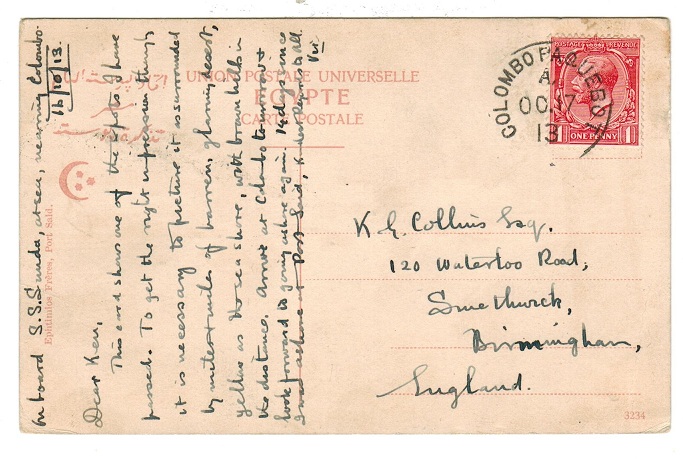 UNION POSTALE UNIVERSELLE
EGYPTE
CARTE POSTALE
COLOMBO PAQUEBOT
OC 17
13
POSTAGE REVENUE
ONE PENNY
1
K. G. Collins Esq.
120 Waterloo Road,
Smethwick,
Birmingham,
England.
3234
Ephtimios Frères, Port Said.
On board S.S. Sunda, at sea, nearing Colombo.
16/10/13.
Dear Ken,
This card shows one of the spots I have
passed. To get the right impression though
it is necessary to picture it as surrounded
by miles & miles of barren, glaring desert,
yellow as the sea shore, with brown hills in
the distance. Arrive at Colombo to-morrow &
look forward to going ashore again. 14 days since
I was ashore at Port Said, &